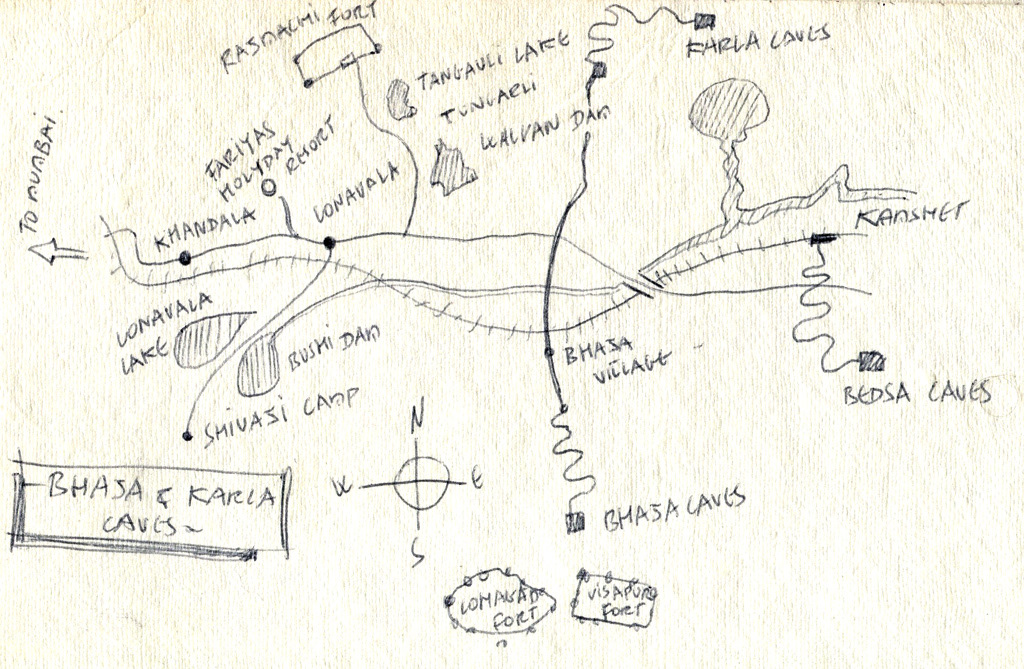 RASMACHI FORT
KARLA CAVES
TANGAULI LAKE
TUNGARLI
WALVAN DAM
TO MUMBAI
FARIYAS
HOLYDAY
RHORT
LONAVALA
KHANDALA
KAMSHET
LONAVALA
LAKE
BUSHI DAM
BHAJA
VILLAGE
BEDSA CAVES
SHIVAJI CAMP
N
W
E
S
BHAJA & KARLA
CAVES
BHAJA CAVES
LOHAGAD
FORT
VISAPUR
FORT